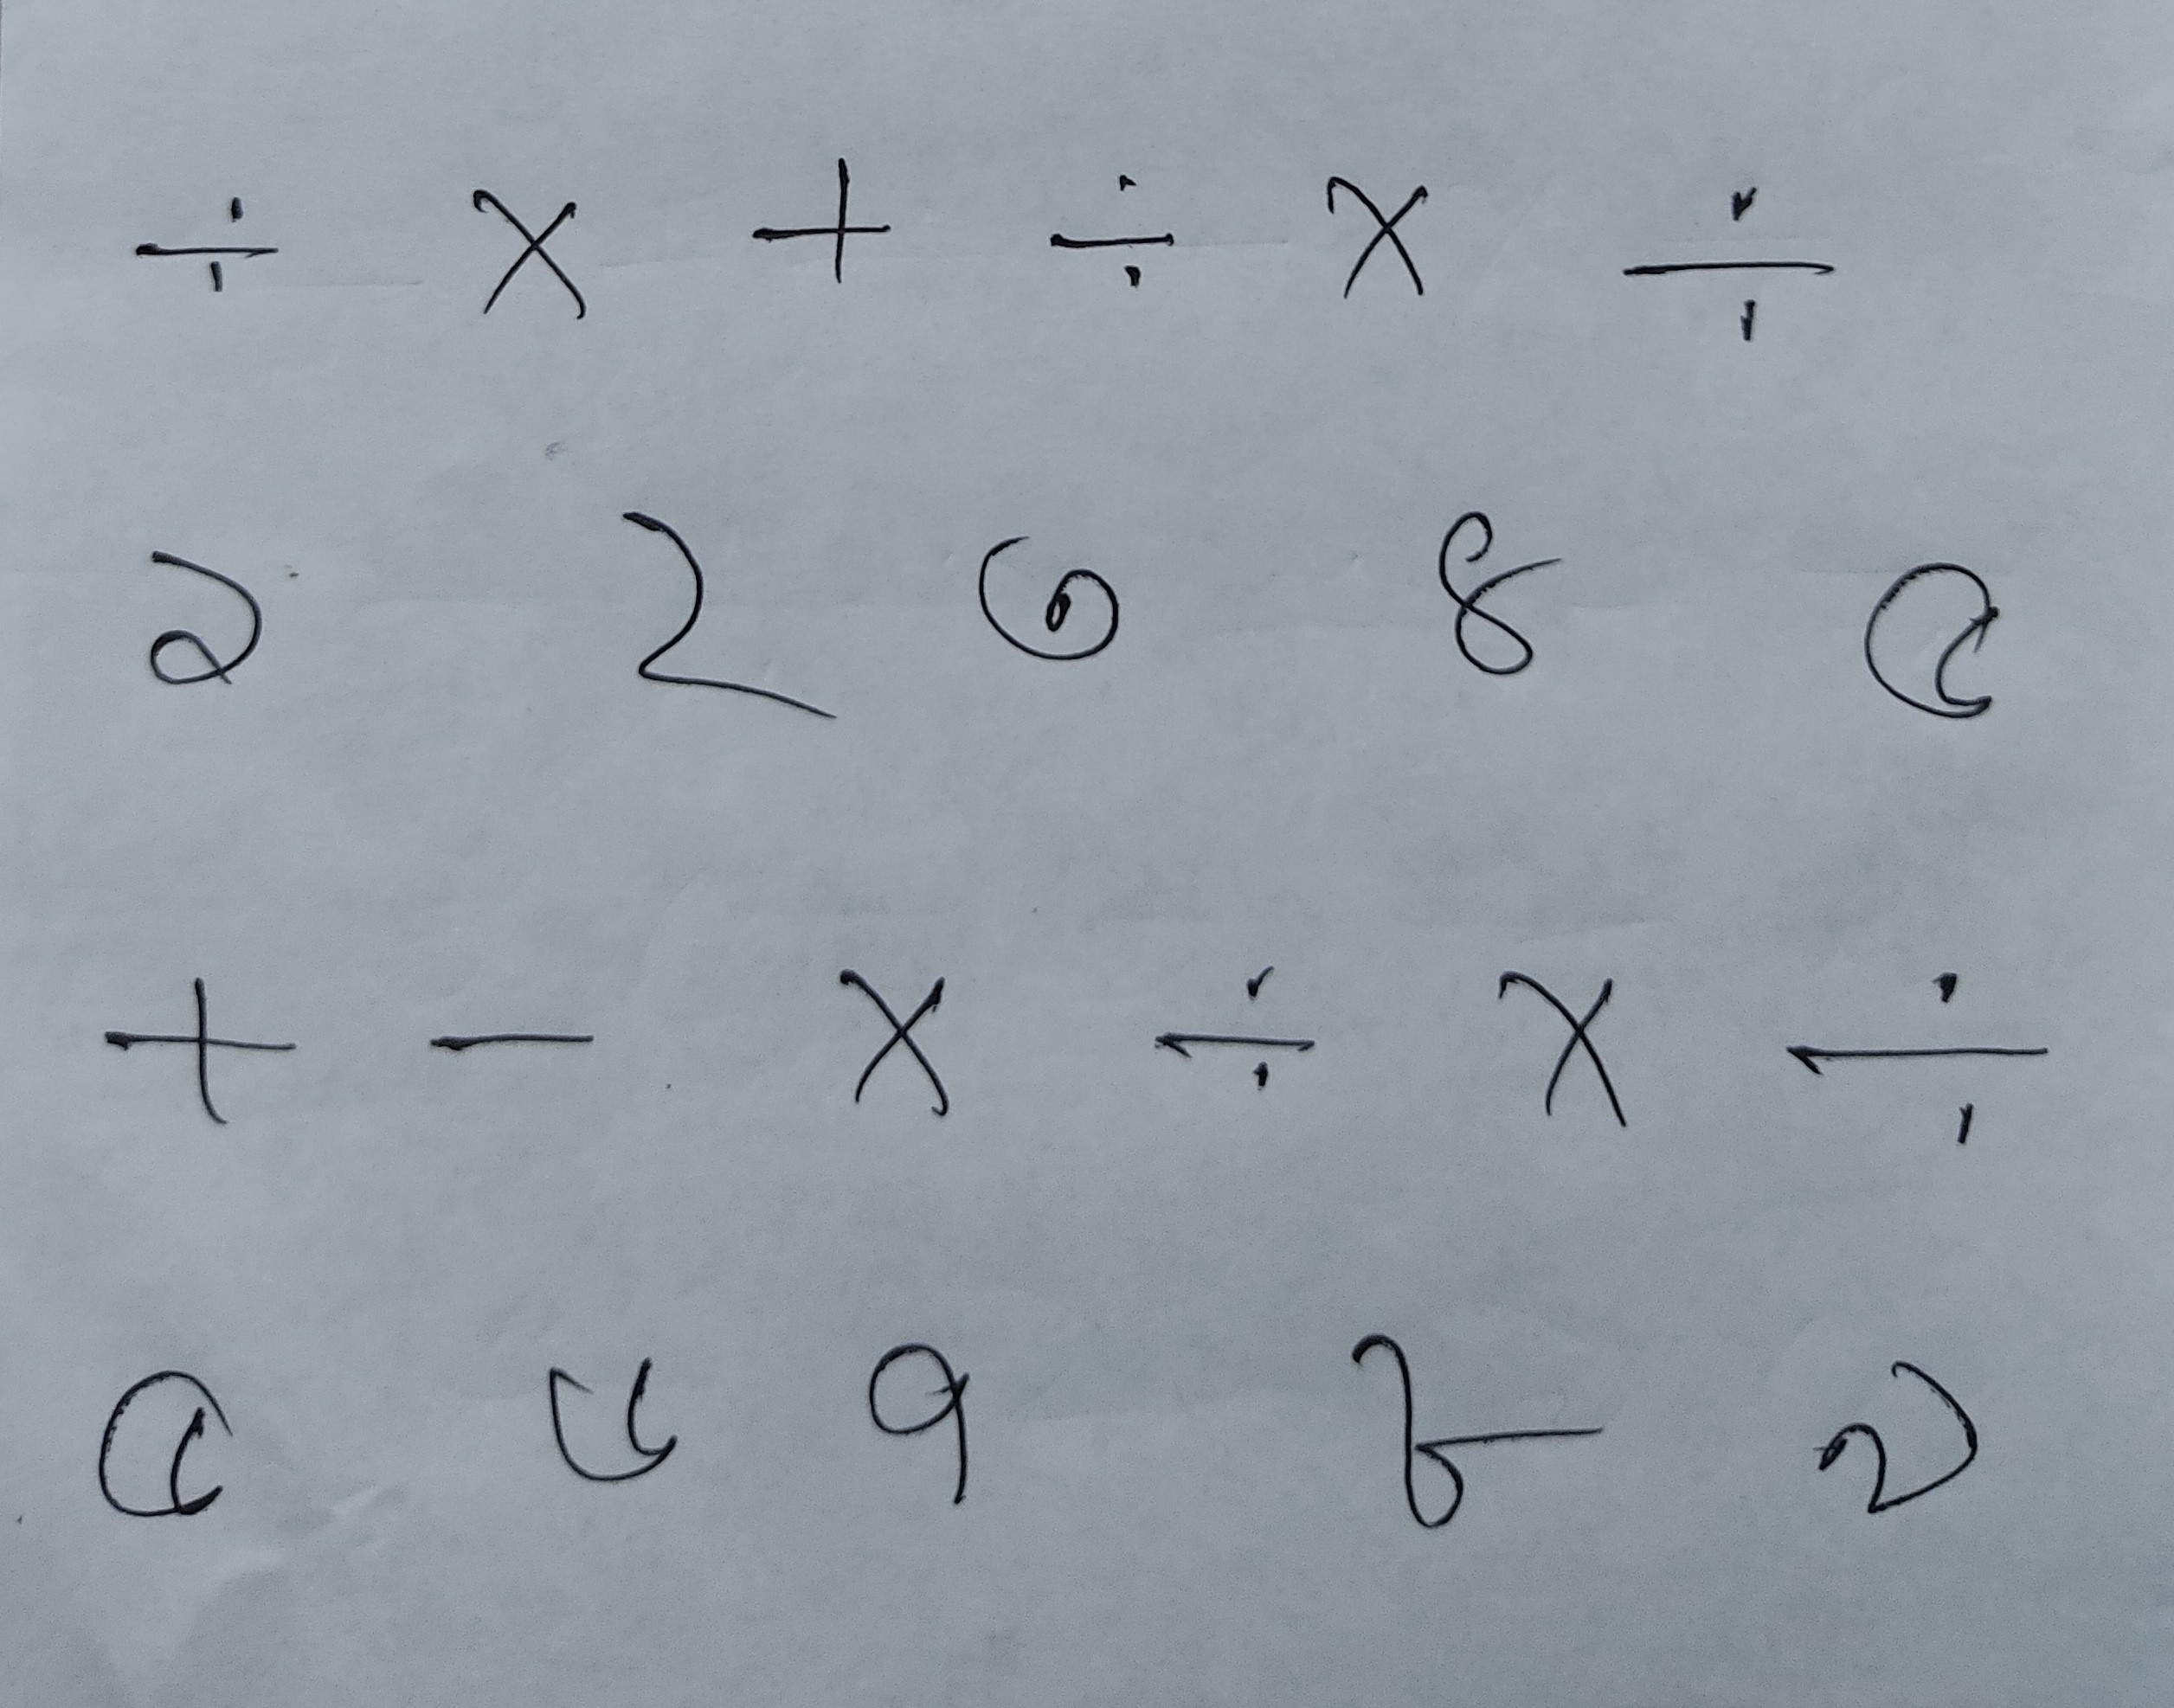 ÷ × + ÷ × ÷
১ ২ ৩ ৪ ৫
+ - × ÷ × ÷
৫ ৬ ৭ ৮ ৯